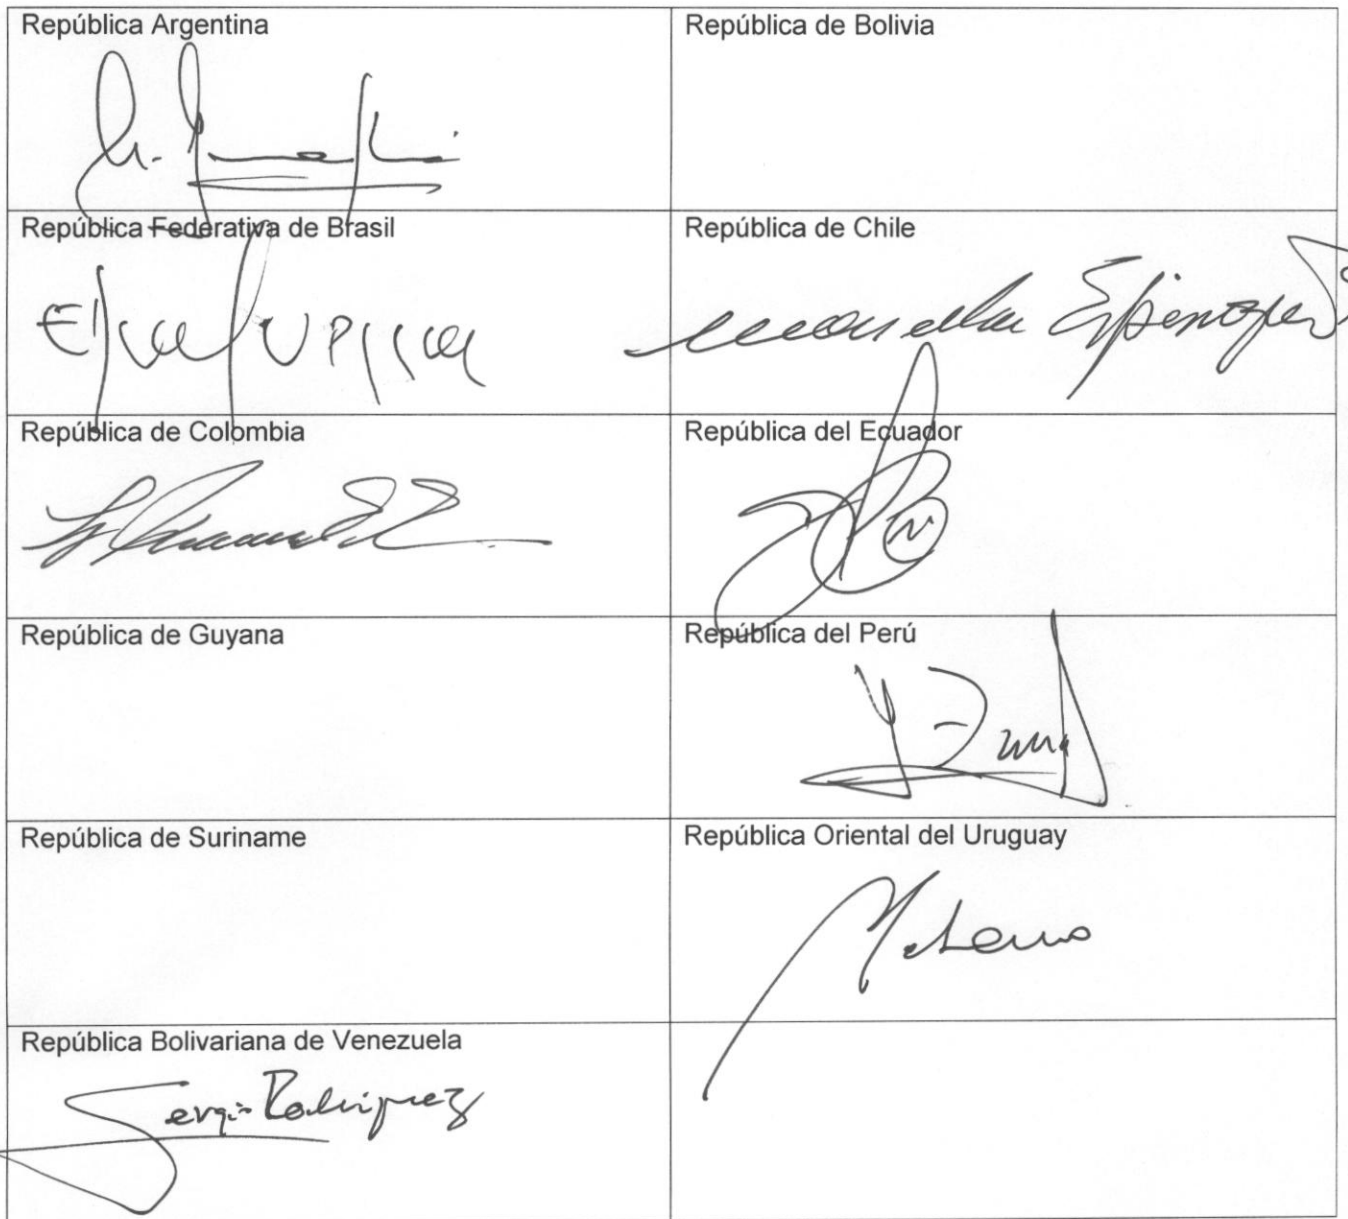 República Argentina
República de Bolivia
República Federativa de Brasil
República de Chile
Espinoza
República de Colombia
República del Ecuador
República de Guyana
República del Perú
República de Suriname
República Oriental del Uruguay
República Bolivariana de Venezuela
Sergio Rodriguez